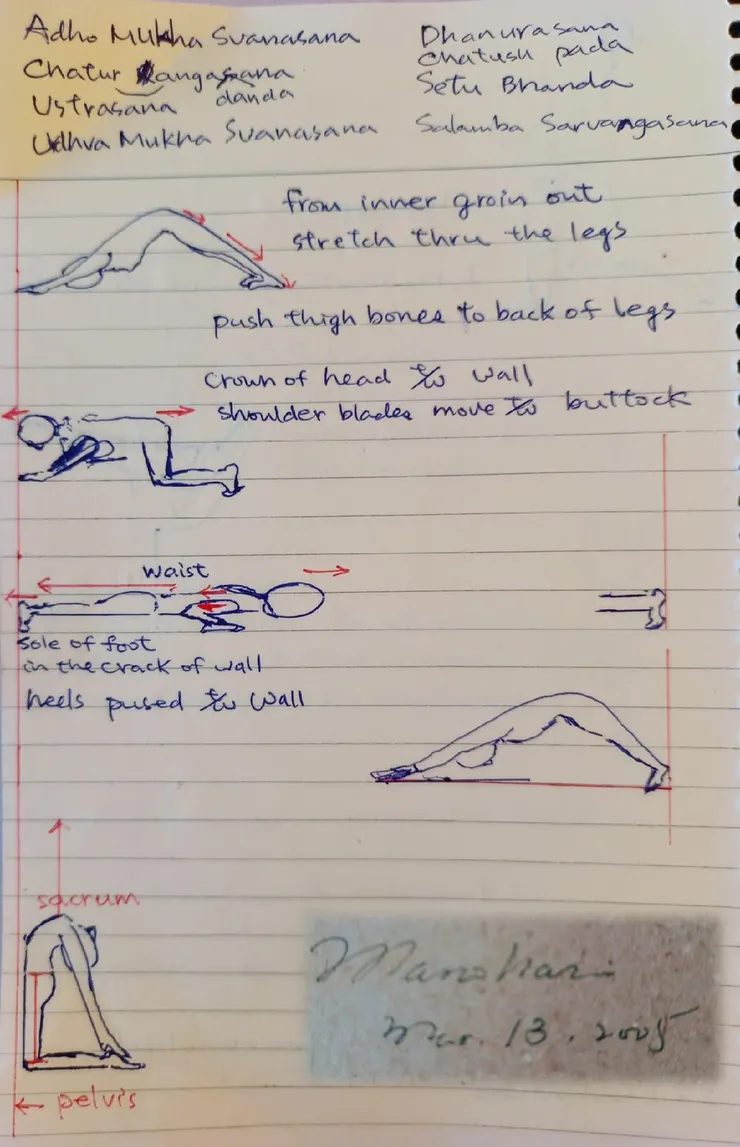 Adho Mukha Svanasana
Chatur angasana
danda
Ustrasana
Udhva Mukha Svanasana
Dhanurasana
Chatush pada
Setu Bhanda
Salamba Sarvangasana
from inner groin out
stretch thru the legs
push thigh bones to back of legs
Crown of head to wall
shoulder blades move to buttock
waist
sole of foot
in the crack of wall
heels pused to wall
sacrum
pelvis
Manohari
Mar. 13. 2005